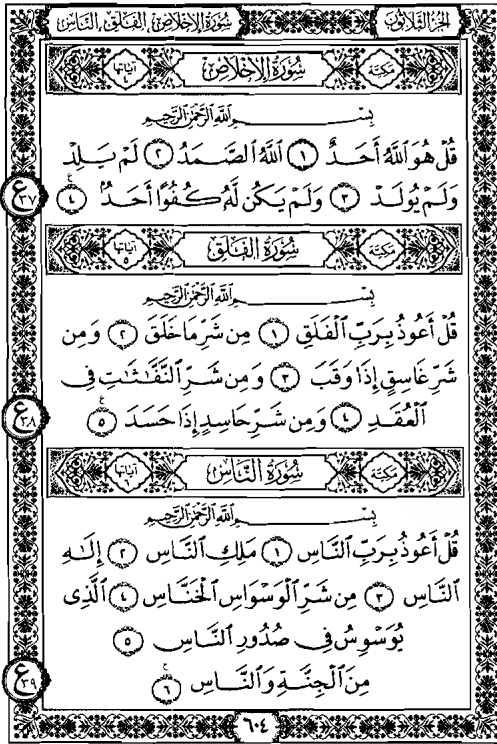 الجزء الثلاثون سورة الإخلاص، الفلق، الناس
مكية سورة الإخلاص آياتها ٤
بِسْمِ اللَّهِ الرَّحْمَٰنِ الرَّحِيمِ
قُلْ هُوَ اللَّهُ أَحَدٌ ١ اللَّهُ الصَّمَدُ ٢ لَمْ يَلِدْ
وَلَمْ يُولَدْ ٣ وَلَمْ يَكُن لَّهُ كُفُوًا أَحَدٌ ٤ ع ٣٧
مكية سورة الفلق آياتها ٥
بِسْمِ اللَّهِ الرَّحْمَٰنِ الرَّحِيمِ
قُلْ أَعُوذُ بِرَبِّ الْفَلَقِ ١ مِن شَرِّ مَا خَلَقَ ٢ وَمِن
شَرِّ غَاسِقٍ إِذَا وَقَبَ ٣ وَمِن شَرِّ النَّفَّٰثَٰتِ فِي
الْعُقَدِ ٤ وَمِن شَرِّ حَاسِدٍ إِذَا حَسَدَ ٥ ع ٣٨
مكية سورة الناس آياتها ٦
بِسْمِ اللَّهِ الرَّحْمَٰنِ الرَّحِيمِ
قُلْ أَعُوذُ بِرَبِّ النَّاسِ ١ مَلِكِ النَّاسِ ٢ إِلَٰهِ
النَّاسِ ٣ مِن شَرِّ الْوَسْوَاسِ الْخَنَّاسِ ٤ الَّذِي
يُوَسْوِسُ فِي صُدُورِ النَّاسِ ٥
مِنَ الْجِنَّةِ وَالنَّاسِ ٦ ع ٣٩
٦٠٤